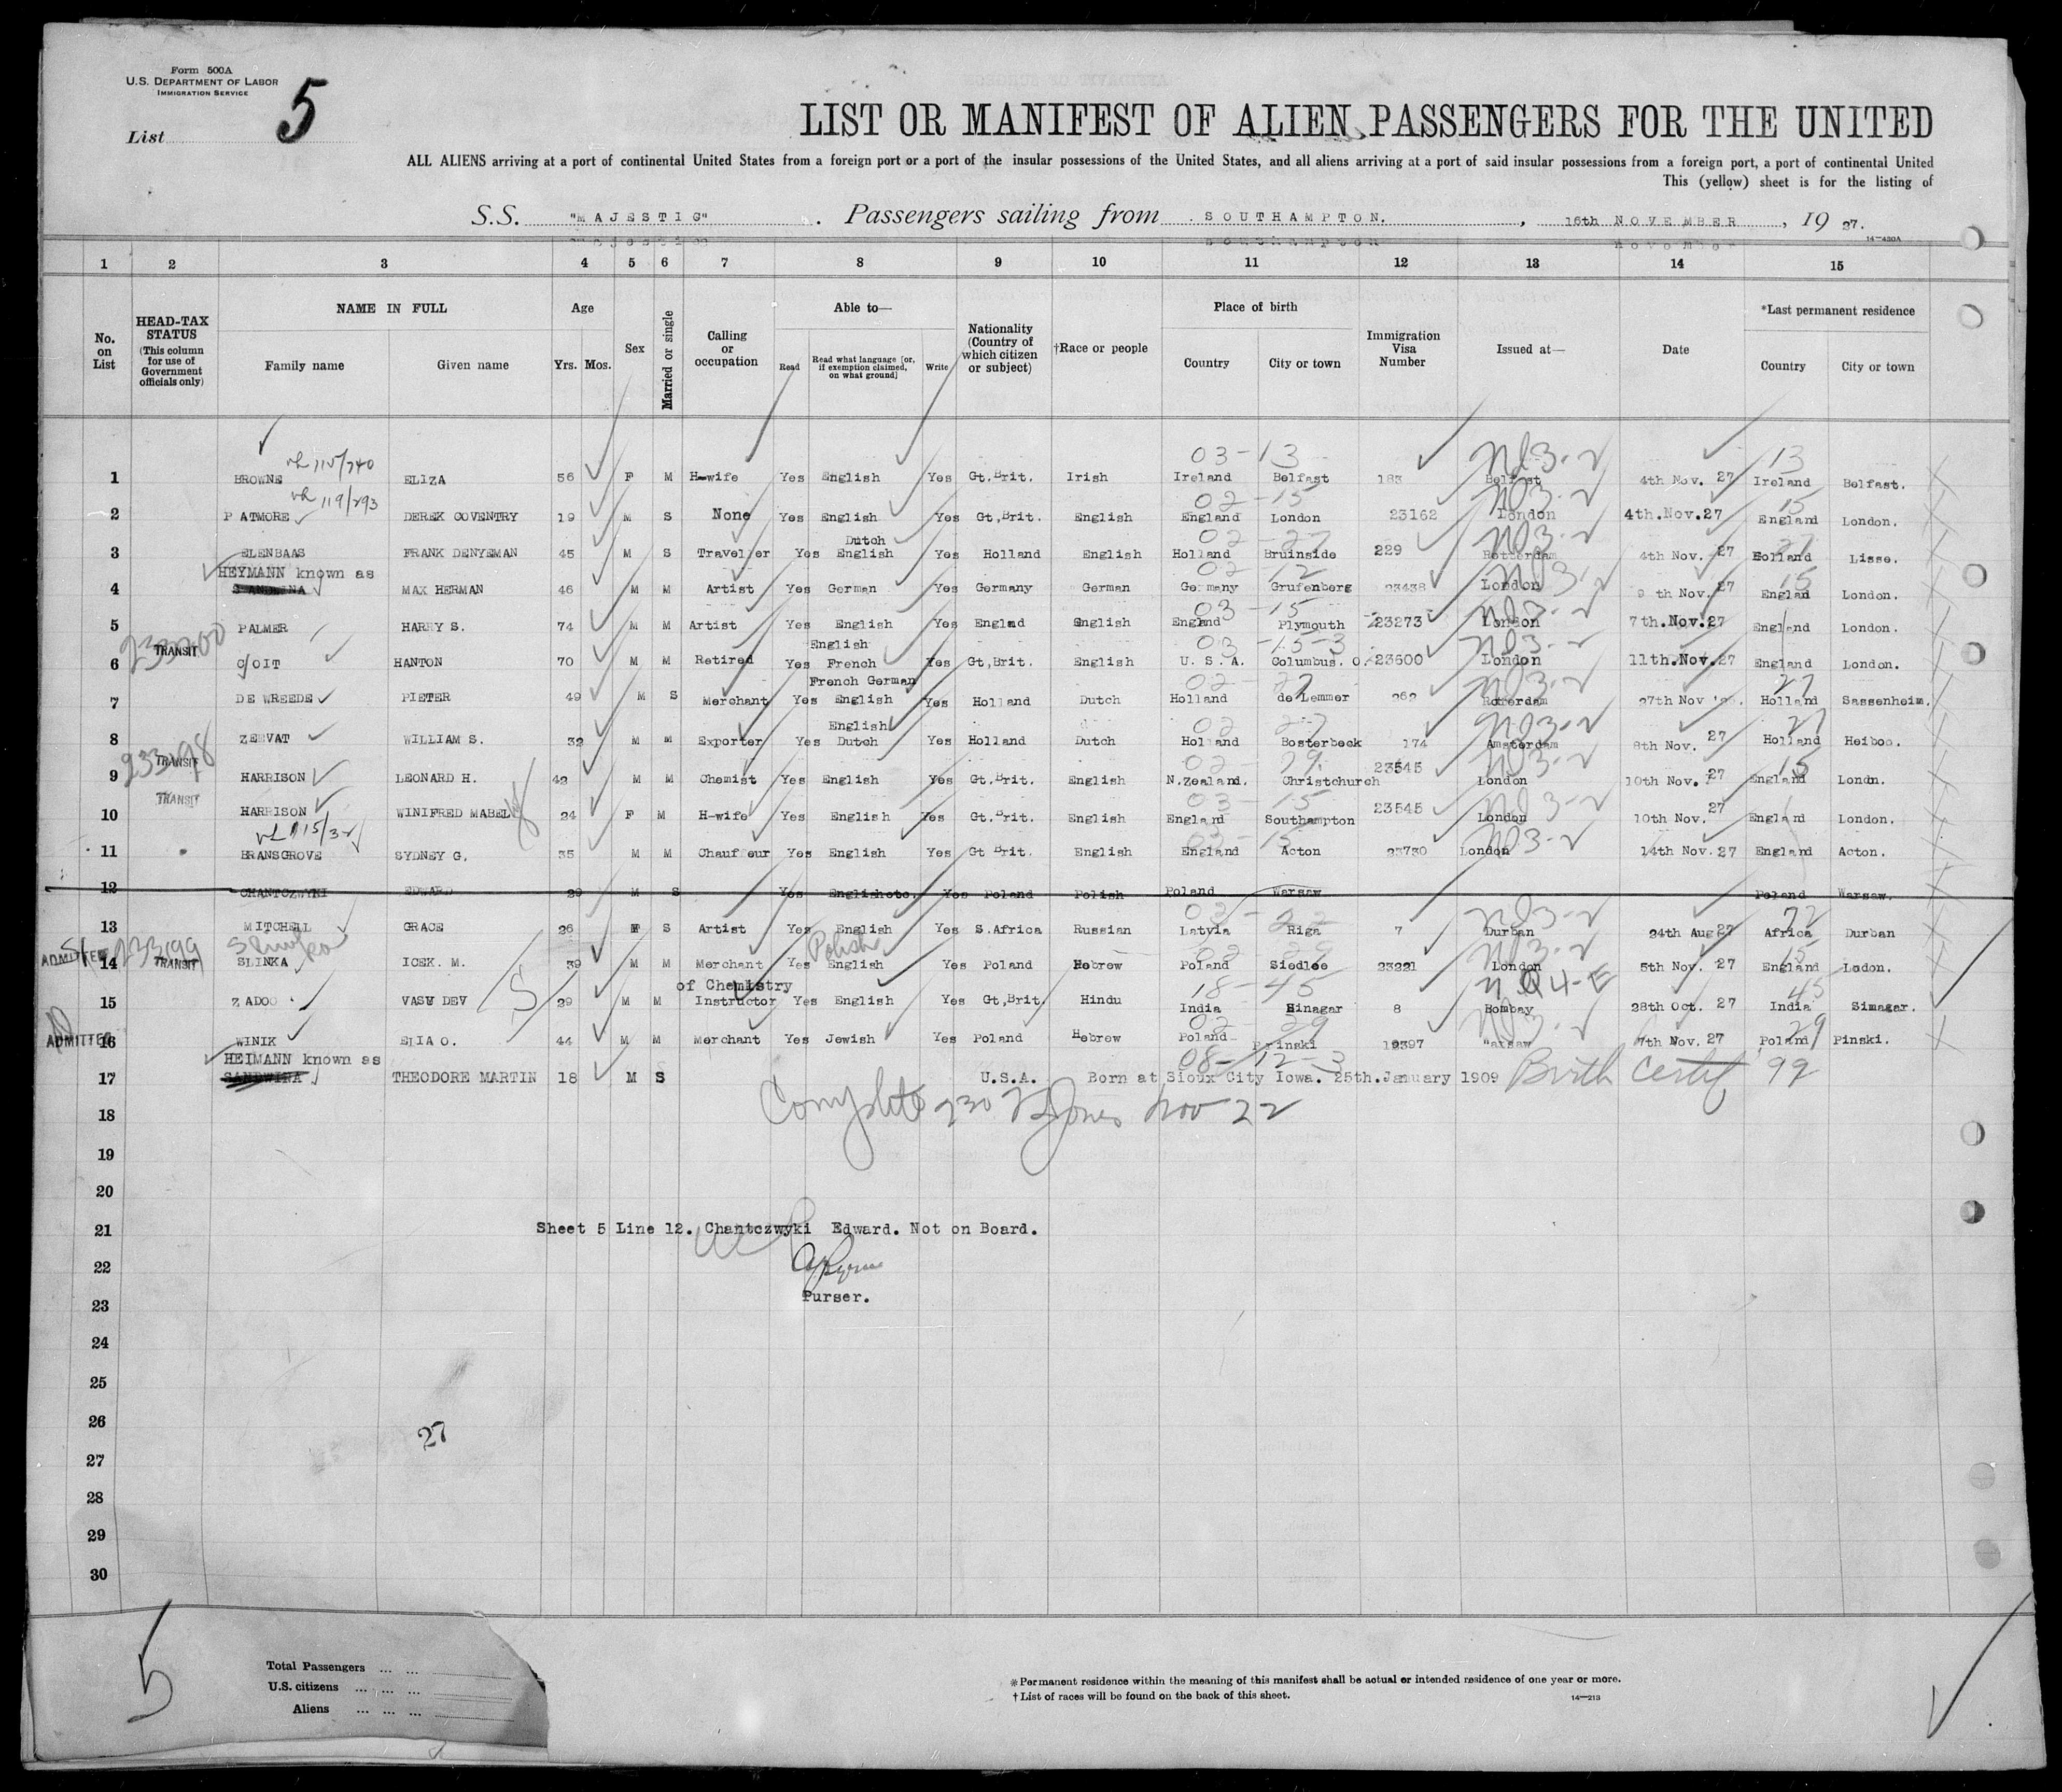 Form 500A
U.S. DEPARTMENT OF LABOR
IMMIGRATION SERVICE
List 5
LIST OR MANIFEST OF ALIEN PASSENGERS FOR THE UNITED
ALL ALIENS arriving at a port of continental United States from a foreign port or a port of the insular possessions of the United States, and all aliens arriving at a port of said insular possessions from a foreign port, a port of continental United
This (yellow) sheet is for the listing of
S.S. "MAJESTIC" . Passengers sailing from SOUTHAMPTON. , 16th NOVEMBER , 19 27.
14-430A
1 2 3 4 5 6 7 8 9 10 11 12 13 14 15
No. on List HEAD-TAX STATUS (This column for use of Government officials only) NAME IN FULL Family name Given name Age Yrs. Mos. Sex Married or single Calling or occupation Able to— Read Read what language [or, if exemption claimed, on what ground] Write Nationality (Country of which citizen or subject) †Race or people Place of birth Country City or town Immigration Visa Number Issued at— Date *Last permanent residence Country City or town
115/740 03-13 Nd3-2 13
1 BROWNE ELIZA 56 F M H-wife Yes English Yes Gt.Brit. Irish Ireland Belfast 183 Belfast 4th Nov. 27 Ireland Belfast.
119/293 02-15 Nd3-2 15
2 PATMORE DEREK COVENTRY 19 M S None Yes English Yes Gt,Brit. English England London 23162 London 4th.Nov.27 England London.
Dutch 02-27 Nd3-2 27
3 ELENBAAS FRANK DENYEMAN 45 M S Traveller Yes English Yes Holland English Holland Bruinside 229 Rotterdam 4th Nov. 27 Holland Lisse.
HEYMANN known as 02-12 Nd3-2 15
4 MAX HERMAN 46 M M Artist Yes German Yes Germany German Germany Grufenberg 23438 London 9 th Nov. 27 England London.
03-15 Nd3-2
5 PALMER HARRY S. 74 M M Artist Yes English Yes Englnd English England Plymouth 23273 London 7th.Nov.27 England London.
233200 TRANSIT English 03-15-3 Nd3-2
6 COIT HANTON 70 M M Retired Yes French Yes Gt,Brit. English U. S. A. Columbus. O. 23600 London 11th.Nov.27 England London.
French German 02-27 Nd3-2 27
7 DE WREEDE PIETER 49 M S Merchant Yes English Yes Holland Dutch Holland de Lemmer 262 Rotterdam 27th Nov Holland Sassenheim.
English 02 27 Nd3-2 27
8 ZEEVAT WILLIAM S. 32 M M Exporter Yes Dutch Yes Holland Dutch Holland Bosterbeek 174 Amsterdam 8th Nov. 27 Holland Heiboo.
233198 TRANSIT 02-29 Nd3-2 15
9 HARRISON LEONARD H. 42 M M Chemist Yes English Yes Gt.Brit. English N.Zealand. Christchurch 23545 London 10th Nov. 27 England Londn.
TRANSIT 03-15 Nd3-2
10 HARRISON WINIFRED MABEL 24 F M H-wife Yes English Yes Gt.Brit. English England Southampton 23545 London 10th Nov. 27 England London.
115/32 02-15 Nd3-2
11 BRANSGROVE SYDNEY G. 35 M M Chauffeur Yes English Yes Gt Brit. English England Acton 23730 London 14th Nov. 27 England Acton.
12 CHANTCZWYKI EDWARD 29 M S Yes Englishetc. Yes Poland Polish Poland Warsaw Poland Warsaw.
03-22 Nd3-2 72
13 MITCHELL GRACE 26 F S Artist Yes English Yes S.Africa Russian Latvia Riga 7 Durban 24th Aug 27 Africa Durban
ADMITTED 233199 TRANSIT Polish 02-29 Nd3-2 15
14 SLINKA ICEK. M. 39 M M Merchant Yes English Yes Poland Hebrew Poland Siedlce 23221 London 5th Nov. 27 England Lodon.
of Chemistry 18-45 NQ4-E 45
15 ZADOO VASU DEV 29 M M Instructor Yes English Yes Gt,Brit. Hindu India Sinagar 8 Bombay 28th Oct. 27 India Simagar.
ADMITTED 02-29 Nd3-2 29
16 WINIK ELIA O. 44 M M Merchant Yes Jewish Yes Poland Hebrew Poland Prinski 12397 Warsaw 7th Nov. 27 Poland Pinski.
HEIMANN known as 08-12-3
17 SANDWINA THEODORE MARTIN 18 M S U.S.A. Born at Sioux City Iowa. 25th.January 1909 Birth Certif '99
18 Complete 230 Jones Nov 22
19
20
21 Sheet 5 Line 12. Chantczwyki Edward. Not on Board.
22
23 Purser.
24
25
26 27
27
28
29
30
5
Total Passengers ... ...
U.S. citizens ... ... ...
Aliens ... ... ...
*Permanent residence within the meaning of this manifest shall be actual or intended residence of one year or more.
†List of races will be found on the back of this sheet.
14-213